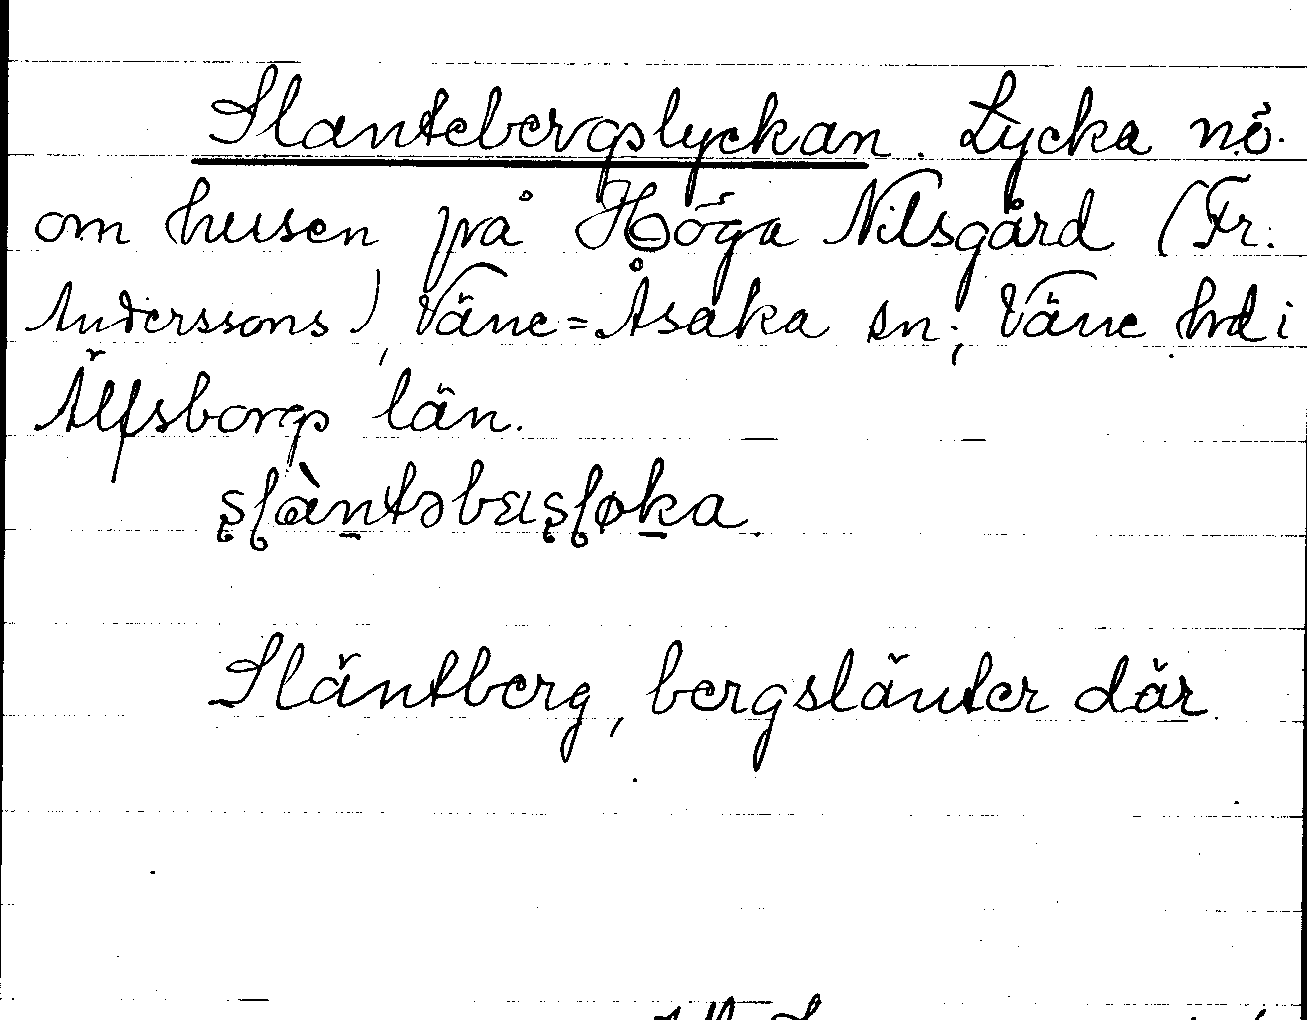 Slantebergslyckan. Lycka nö.
om husen på Höga Nilsgård (Fr.
Anderssons), Väne=Åsaka sn; Väne hd i
Älfsborgs län.
Släntberg, bergslänter där.